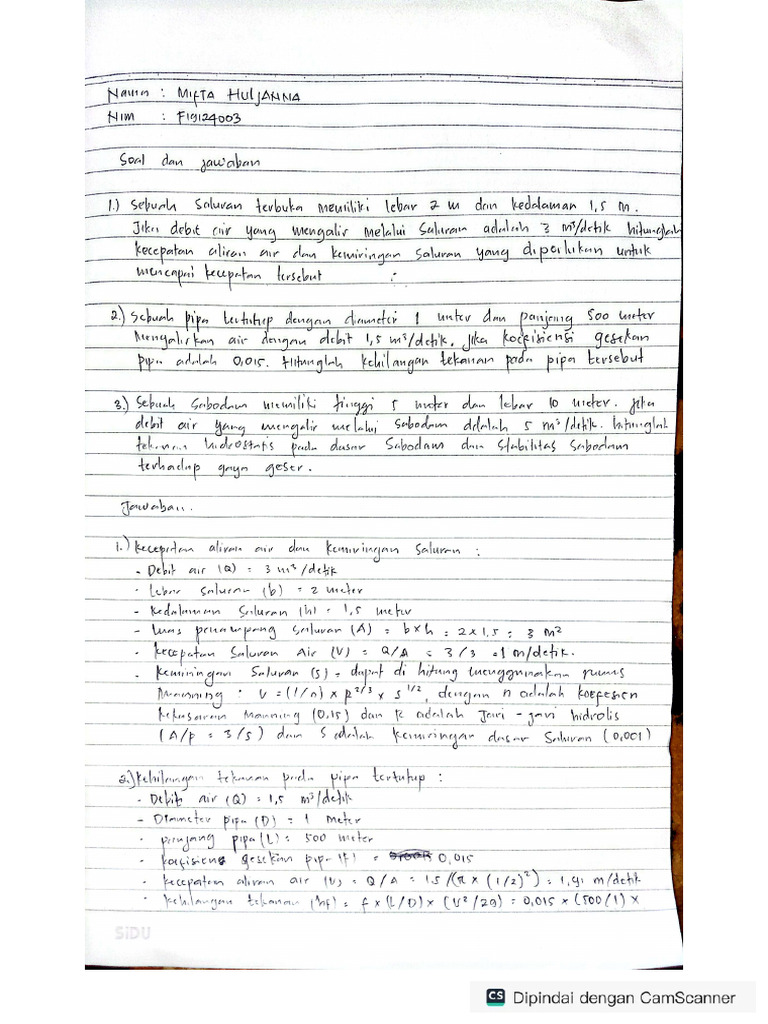 Nama : MIFTA HULJANNA
NIM : F19124003
Soal dan jawaban
1.) Sebuah Saluran terbuka memiliki lebar 2 m dan kedalaman 1,5 m.
Jika debit air yang mengalir melalui saluran adalah 3 m³/detik hitunglah
kecepatan aliran air dan kemiringan saluran yang diperlukan untuk
mencapai kecepatan tersebut :
2.) Sebuah pipa tertutup dengan diameter 1 meter dan panjang 500 meter
Mengalirkan air dengan debit 1,5 m³/detik. Jika koefisiensi gesekan
pipa adalah 0,015. Hitunglah kehilangan tekanan pada pipa tersebut
3.) Sebuah Sabodam memiliki tinggi 5 meter dan lebar 10 meter. Jika
debit air yang mengalir melalui Sabodam adalah 5 m³/detik. hitunglah
tekanan hidrostatis pada dasar Sabodam dan Stabilitas Sabodam
terhadap gaya geser.
Jawaban.
1.) Kecepatan aliran air dan Kemiringan Saluran :
- Debit air (Q) = 3 m³/detik
- Lebar saluran (b) = 2 meter
- Kedalaman Saluran (h) = 1,5 meter
- Luas penampang Saluran (A) = b x h = 2 x 1,5 = 3 m²
- Kecepatan Saluran Air (V) = Q/A = 3/3 = 1 m/detik.
- Kemiringan Saluran (s) = dapat di hitung menggunakan rumus
Manning : V = (1/n) x R^2/3 x S^1/2, dengan n adalah koefesien
kekasaran Manning (0,15) dan R adalah Jari - jari hidrolis
(A/P = 3/5) dan S adalah kemiringan dasar Saluran (0,001)
2.) Kehilangan tekanan pada pipa tertutup :
- Debit air (Q) = 1,5 m³/detik
- Diameter pipa (D) = 1 meter
- panjang pipa (L) = 500 meter
- koefisiens gesekan pipa (f) = 0,015
- kecepatan aliran air (V) = Q/A = 1,5/(π x (1/2)²) = 1,91 m/detik
- Kehilangan tekanan (hf) = f x (L/D) x (V²/2g) = 0,015 x (500/1) x
SiDU
CS Dipindai dengan CamScanner